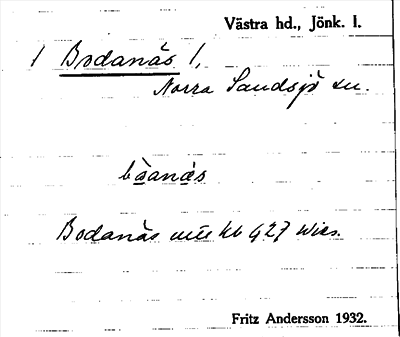 Västra hd., Jönk. l.
1 Bodanäs 1,
Norra Sandsjö sn.
båanäs
Bodanäs
Fritz Andersson 1932.